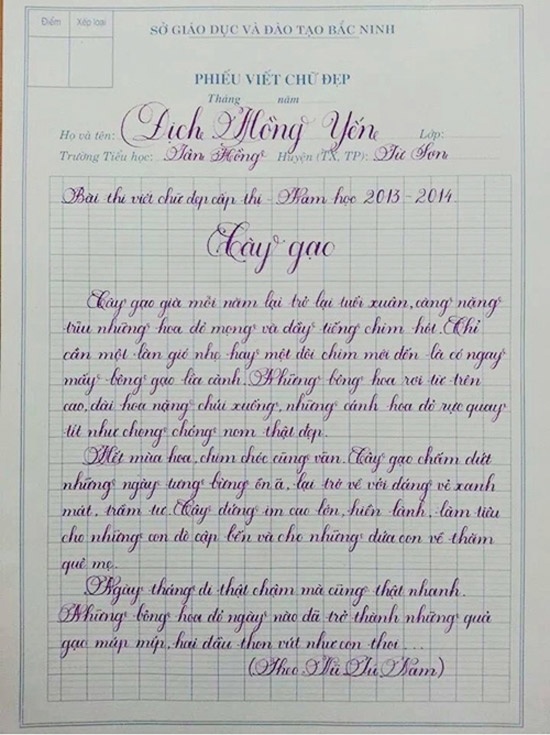 Điểm
Xếp loại
SỞ GIÁO DỤC VÀ ĐÀO TẠO BẮC NINH
PHIẾU VIẾT CHỮ ĐẸP
Tháng năm
Họ và tên: Dịch Hồng Yến Lớp:
Trường Tiểu học: Tân Hồng Huyện (TX, TP): Từ Sơn
Bài thi viết chữ đẹp cấp thị - Năm học 2013 - 2014
Cây gạo
Cây gạo già mỗi năm lại trở lại tuổi xuân, càng nặng
trĩu những hoa đỏ mọng và đầy tiếng chim hót. Chỉ
cần một làn gió nhẹ hay một đôi chim mới đến là có ngay
mấy bông gạo lìa cành. Những bông hoa rơi từ trên
cao, đài hoa nặng chúi xuống, những cánh hoa đỏ rực quay
tít như chong chóng nom thật đẹp.
Hết mùa hoa, chim chóc cũng vãn. Cây gạo chấm dứt
những ngày tưng bừng ồn ã, lại trở về với dáng vẻ xanh
mát, trầm tư. Cây đứng im cao lớn, hiền lành, làm tiêu
cho những con đò cập bến và cho những đứa con về thăm
quê mẹ.
Ngày tháng đi thật chậm mà cũng thật nhanh.
Những bông hoa đỏ ngày nào đã trở thành những quả
gạo múp míp, hai đầu thon vút như con thoi...
(Theo Vũ Tú Nam)